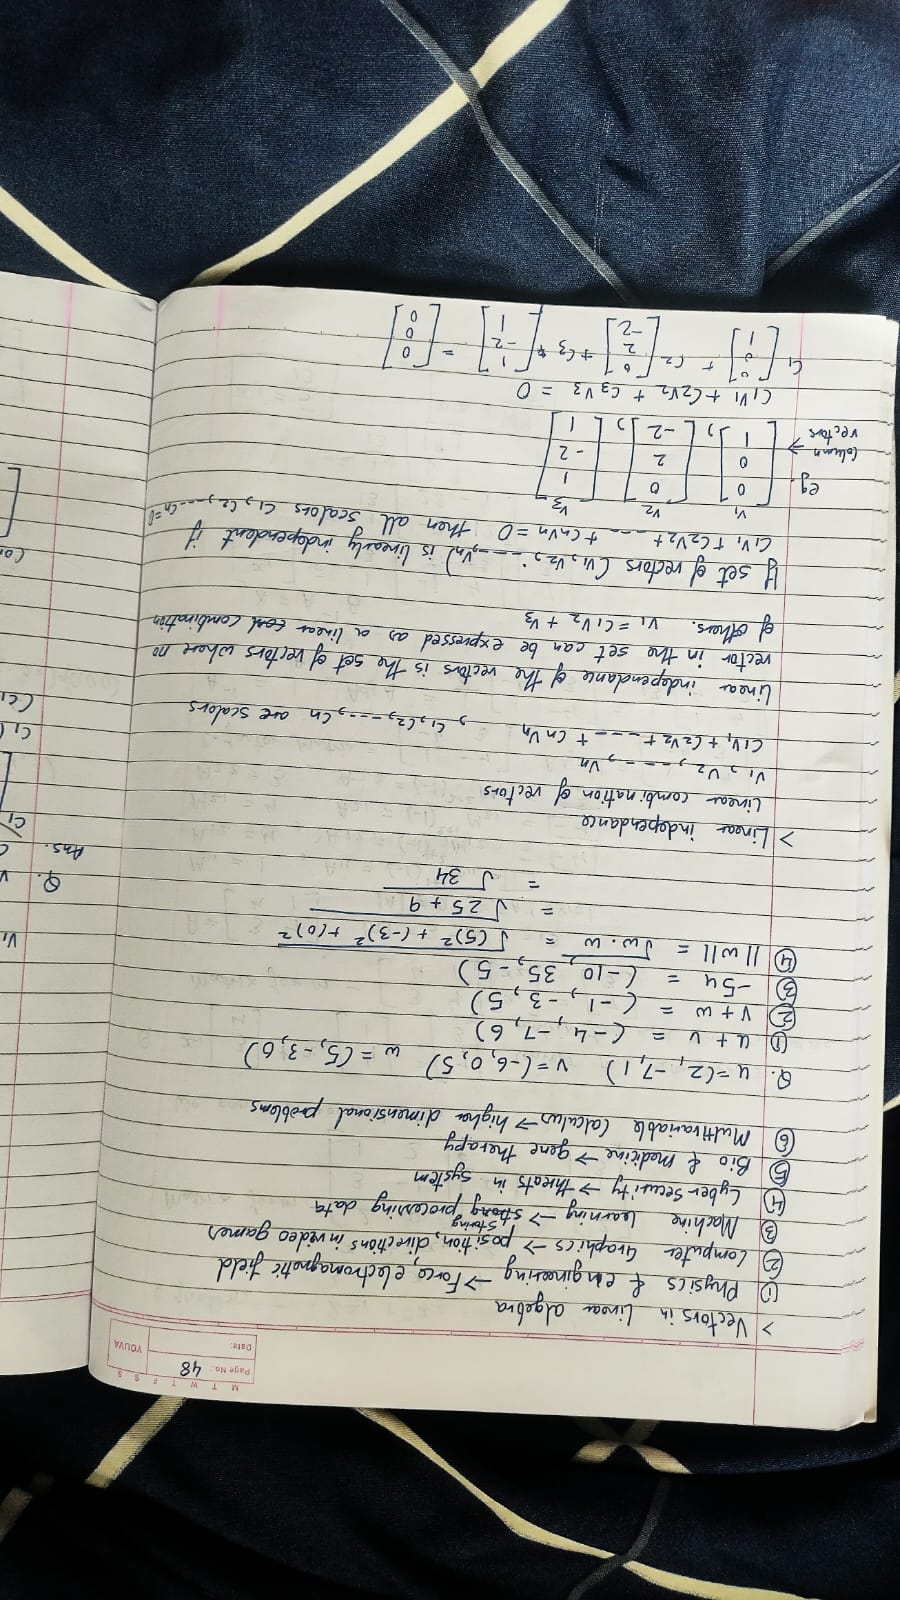 M T W T F S S
Page No.: 48
Date:
YOUVA
> Vectors in Linear algebra
① Physics & engineering → Force, electromagnetic field
② Computer Graphics → position, directions in video games
③ Machine learning → strong storing processing data
④ Cyber Security → threats in system
⑤ Bio & medicine → gene therapy
⑥ Multivariable Calculus → higher dimensional problems
Q. u = (2, -7, 1) v = (-6, 0, 5) w = (5, -3, 0)
① u + v = (-4, -7, 6)
② v + w = (-1, -3, 5)
③ -5u = (-10, 35, -5)
④ ||w|| = √w.w = √(5)² + (-3)² + (0)²
= √25 + 9
= √34
> Linear independance
Linear combination of vectors
V₁, V₂, ----, Vn
C₁V₁ + C₂V₂ + ---- + CnVn , C₁, C₂, ---, Cn are scalors
Linear independance of the vectors is the set of vectors where no
vector in the set can be expressed as a linear combination
of others. V₁ = C₁V₂ + V₃
If set of vectors (V₁, V₂, ----, Vn) is linearly independent if
C₁V₁ + C₂V₂ + ---- + CnVn = 0 then all scalors C₁, C₂, ---Cn = 0
V₁ V₂ V₃
eg. [0 0 1], [0 2 -2], [1 -2 1]
Column vectors →
C₁V₁ + C₂V₂ + C₃V₃ = 0
C₁ [0 0 1] + C₂ [0 2 -2] + C₃ [1 -2 1] = [0 0 0]
V₁
Q. V
Ans. C
C₁
C₁ (
(C₁